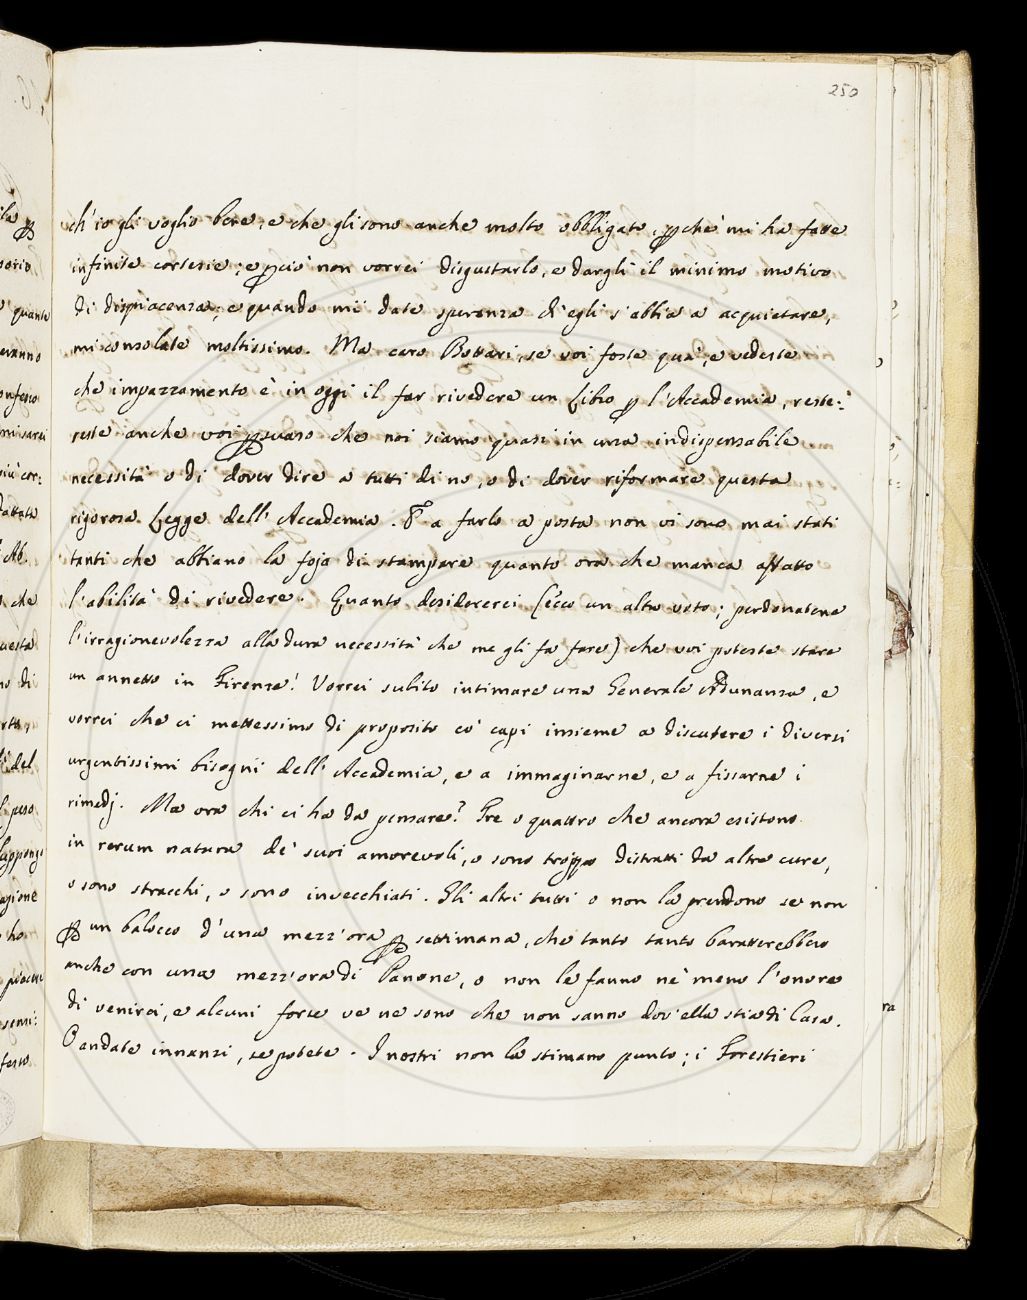 250
ch'io gli voglio bene, e che gli sono anche molto obbligato, p̱chè mi ha fatte
infinite cortesie; e p̱ciò non vorrei disgustarlo, e dargli il minimo motivo
di dispiacenza; e quando mi date speranza ch'egli s'abbia a acquietare,
mi consolate moltissimo. Ma caro Bottari, se voi foste quà, e vedeste
che impazzamento è in oggi il far rivedere un Libro p̱ l'Accademia, reste:
reste anche voi p̱suaso che noi siamo quasi in una indispensabile
necessità o di dover dire a tutti di no, o di dover riformare questa
rigorosa Legge dell'Accademia. E a farlo a posta non vi sono mai stati
tanti che abbiano la foja di stampare quanto ora che manca affatto
l'abilità di rivedere. Quanto desidererei (ecco un altro voto; perdonatene
l'irragionevolezza alla dura necessità che me gli fa fare) che voi poteste stare
un annetto in Firenze! Vorrei subito intimare una Generale Adunanza, e
vorrei che ci mettessimo di proposito co' capi insieme a discutere i diversi
urgentissimi bisogni dell'Accademia, e a immaginarne, e a fissarne i
rimedj. Ma ora chi ci ha da pensare? Tre o quattro che ancora esistono
in rerum natura de' suoi amorevoli, o sono troppo distratti da altre cure,
o sono stracchi, o sono invecchiati. Gli altri tutti o non la prendono se non
p̱ un balocco d'una mezz'ora p̱ settimana, che tanto tanto baratterebbero
anche con una mezz'ora di Panone, o non le fanno nè meno l'onore
di venirci, e alcuni forse ve ne sono che non sanno dov'ella stia di Casa.
O andate innanzi, se potete. I nostri non la stimano punto; i Forestieri